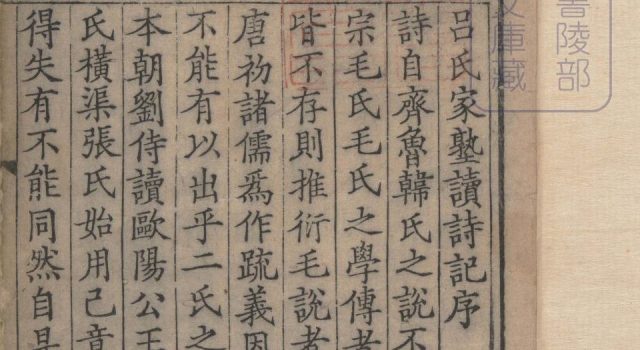 呂氏家塾讀詩記序
詩自齊魯韓氏之說不
宗毛氏毛氏之學傳者
皆不存則推衍毛說者
唐初諸儒爲作疏義因
不能有以出乎二氏之
本朝劉侍讀歐陽公王
氏橫渠張氏始用己意
得失有不能同然自是
書陵部
文庫藏